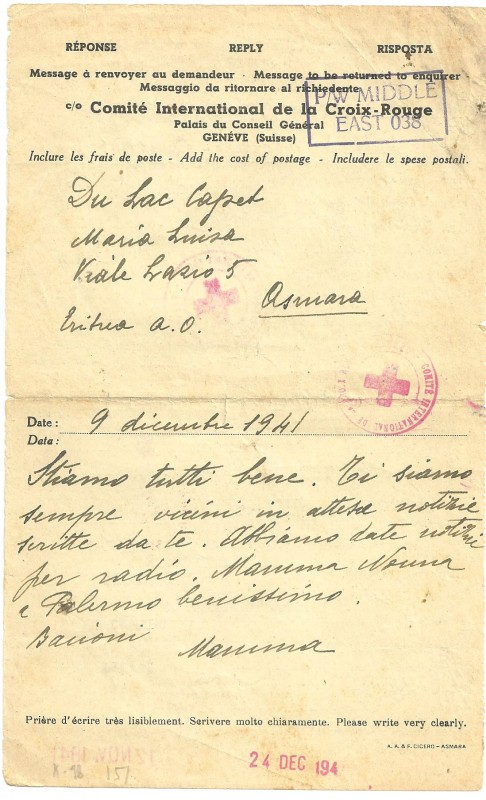 RÉPONSE REPLY RISPOSTA
Message à renvoyer au demandeur - Message to be returned to enquirer
Messaggio da ritornare al richiedente
c/o Comité International de la Croix-Rouge
Palais du Conseil Général
GENÉVE (Suisse)
P/W MIDDLE
EAST 038
Inclure les frais de poste - Add the cost of postage - Includere le spese postali.
Du Lac Capet
Maria Luisa
Viale Lazio 5
Asmara
Eritrea A.O.
COMITÉ INTERNATIONAL DE
Date : 9 dicembre 1941
Data :
Stiamo tutti bene. Ti siamo
sempre vicini in attesa notizie
scritte da te. Abbiamo date notizie
per radio. Mamma Nonna
e Palermo benissimo.
Bacioni
Mamma
Prière d'écrire très lisiblement. Scrivere molto chiaramente. Please write very clearly.
A. A. & F. CICERO - ASMARA
24 DEC 194
151